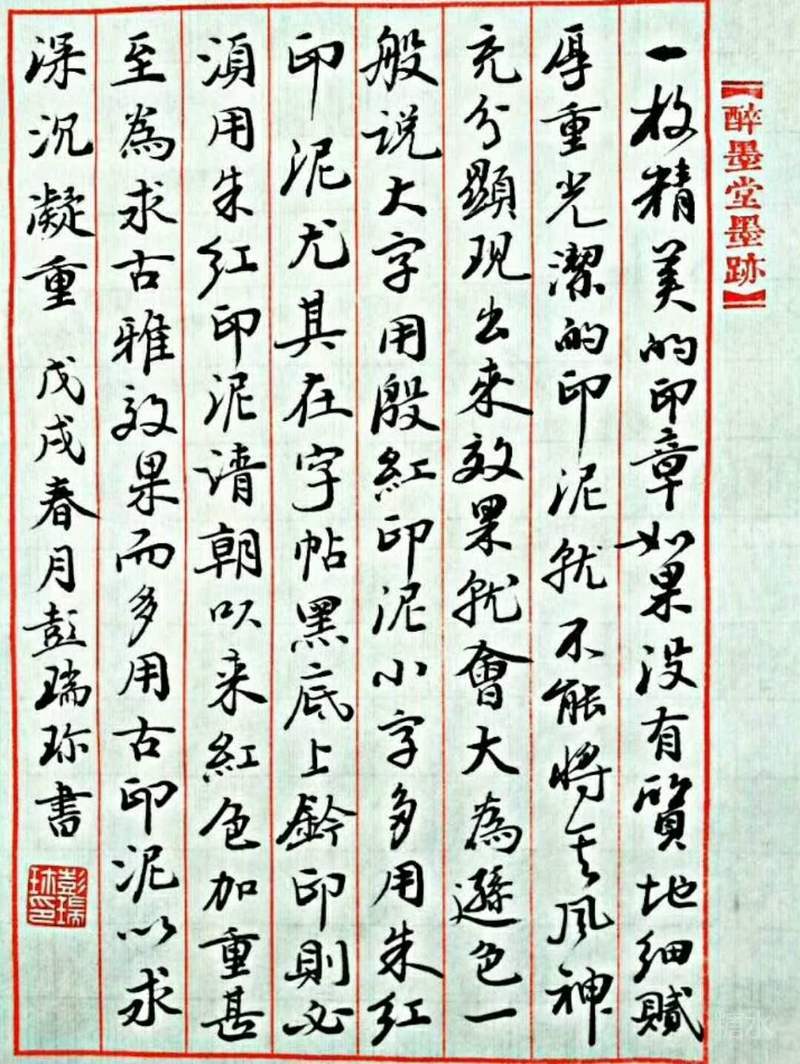 【醉墨堂墨跡】
一枚精美的印章如果没有質地细膩
厚重光潔的印泥就不能將其风神
充分顯现出来效果就會大為遜色一
般说大字用殷紅印泥小字多用朱红
印泥尤其在字帖黑底上鈐印則必
須用朱红印泥清朝以来紅色加重甚
至為求古雅效果而多用古印泥以求
深沉凝重 戊戌春月彭瑞珎書
彭瑞
珎印